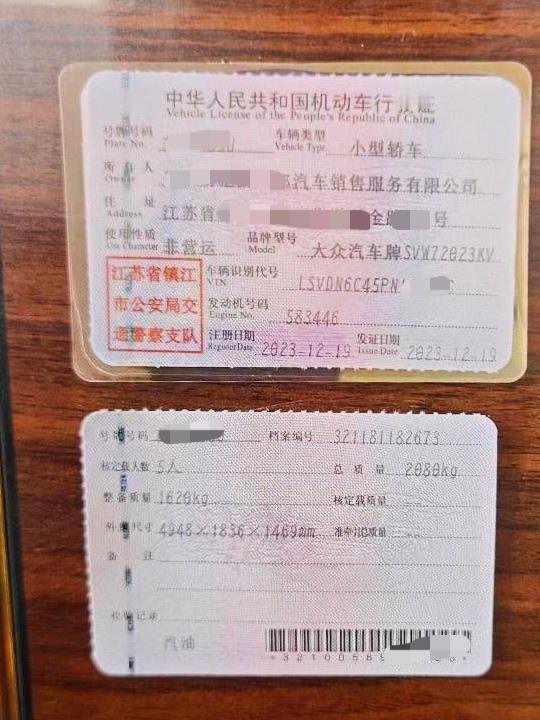 中华人民共和国机动车行 证
Vehicle License of the People's Republic of China
号牌号码 Plate No. 车辆类型 Vehicle Type 小型轿车
所有人 Owner 汽车销售服务有限公司
住址 Address 江苏省 金 号
使用性质 Use Character 非营运 品牌型号 Model 大众汽车牌SVW72023KV
江苏省镇江
市公安局交
通警察支队
车辆识别代号 VIN LSVDN6C45PN
发动机号码 Engine No. 583446
注册日期 Register Date 2023-12-19 发证日期 Issue Date 2023-12-19
号牌号码 档案编号 321181182673
核定载人数 5人 总质量 2080kg
整备质量 1620kg 核定载质量
外廓尺寸 4948×1836×1469mm 准牵引总质量 --
备注
检验记录
汽油
*3210058